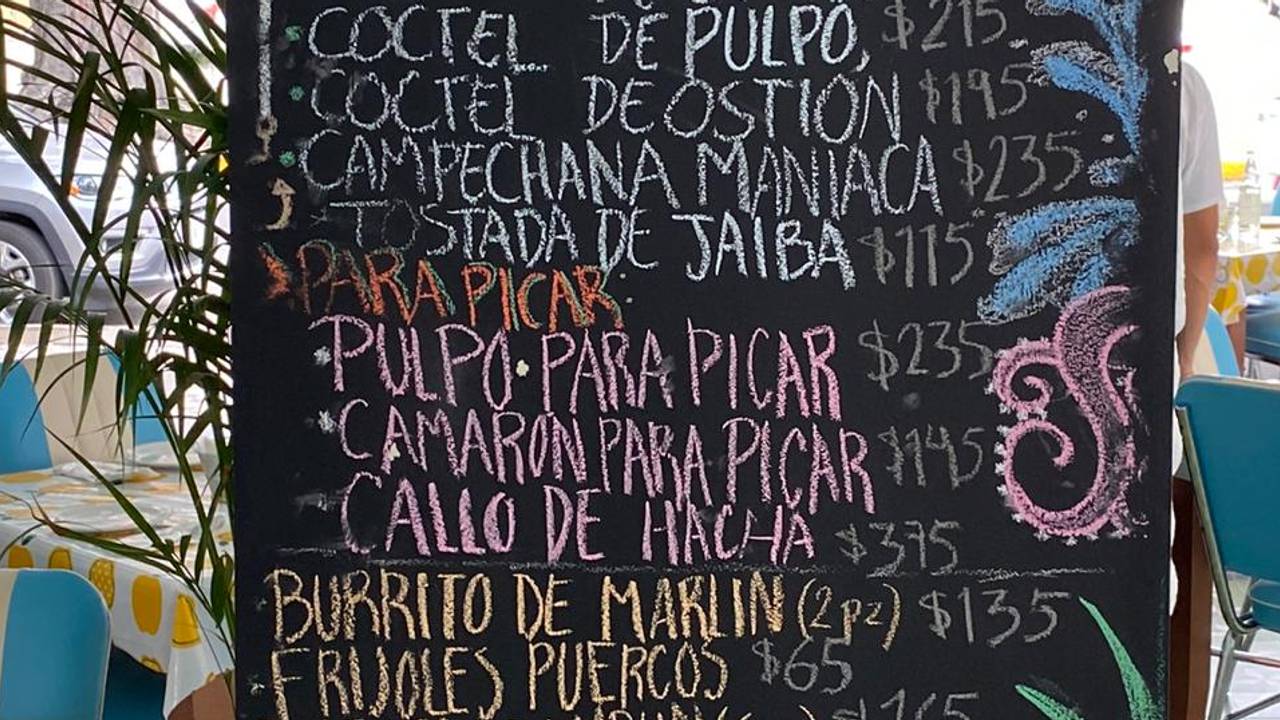 COCTEL DE PULPO, $215
COCTEL DE OSTIÓN $195
CAMPECHANA MANIACA $235
TOSTADA DE JAIBA $115
PARA PICAR
PULPO PARA PICAR $235
CAMARON PARA PICAR $145
CALLO DE HACHA $375
BURRITO DE MARLIN (2pz) $135
FRIJOLES PUERCOS $65
$165